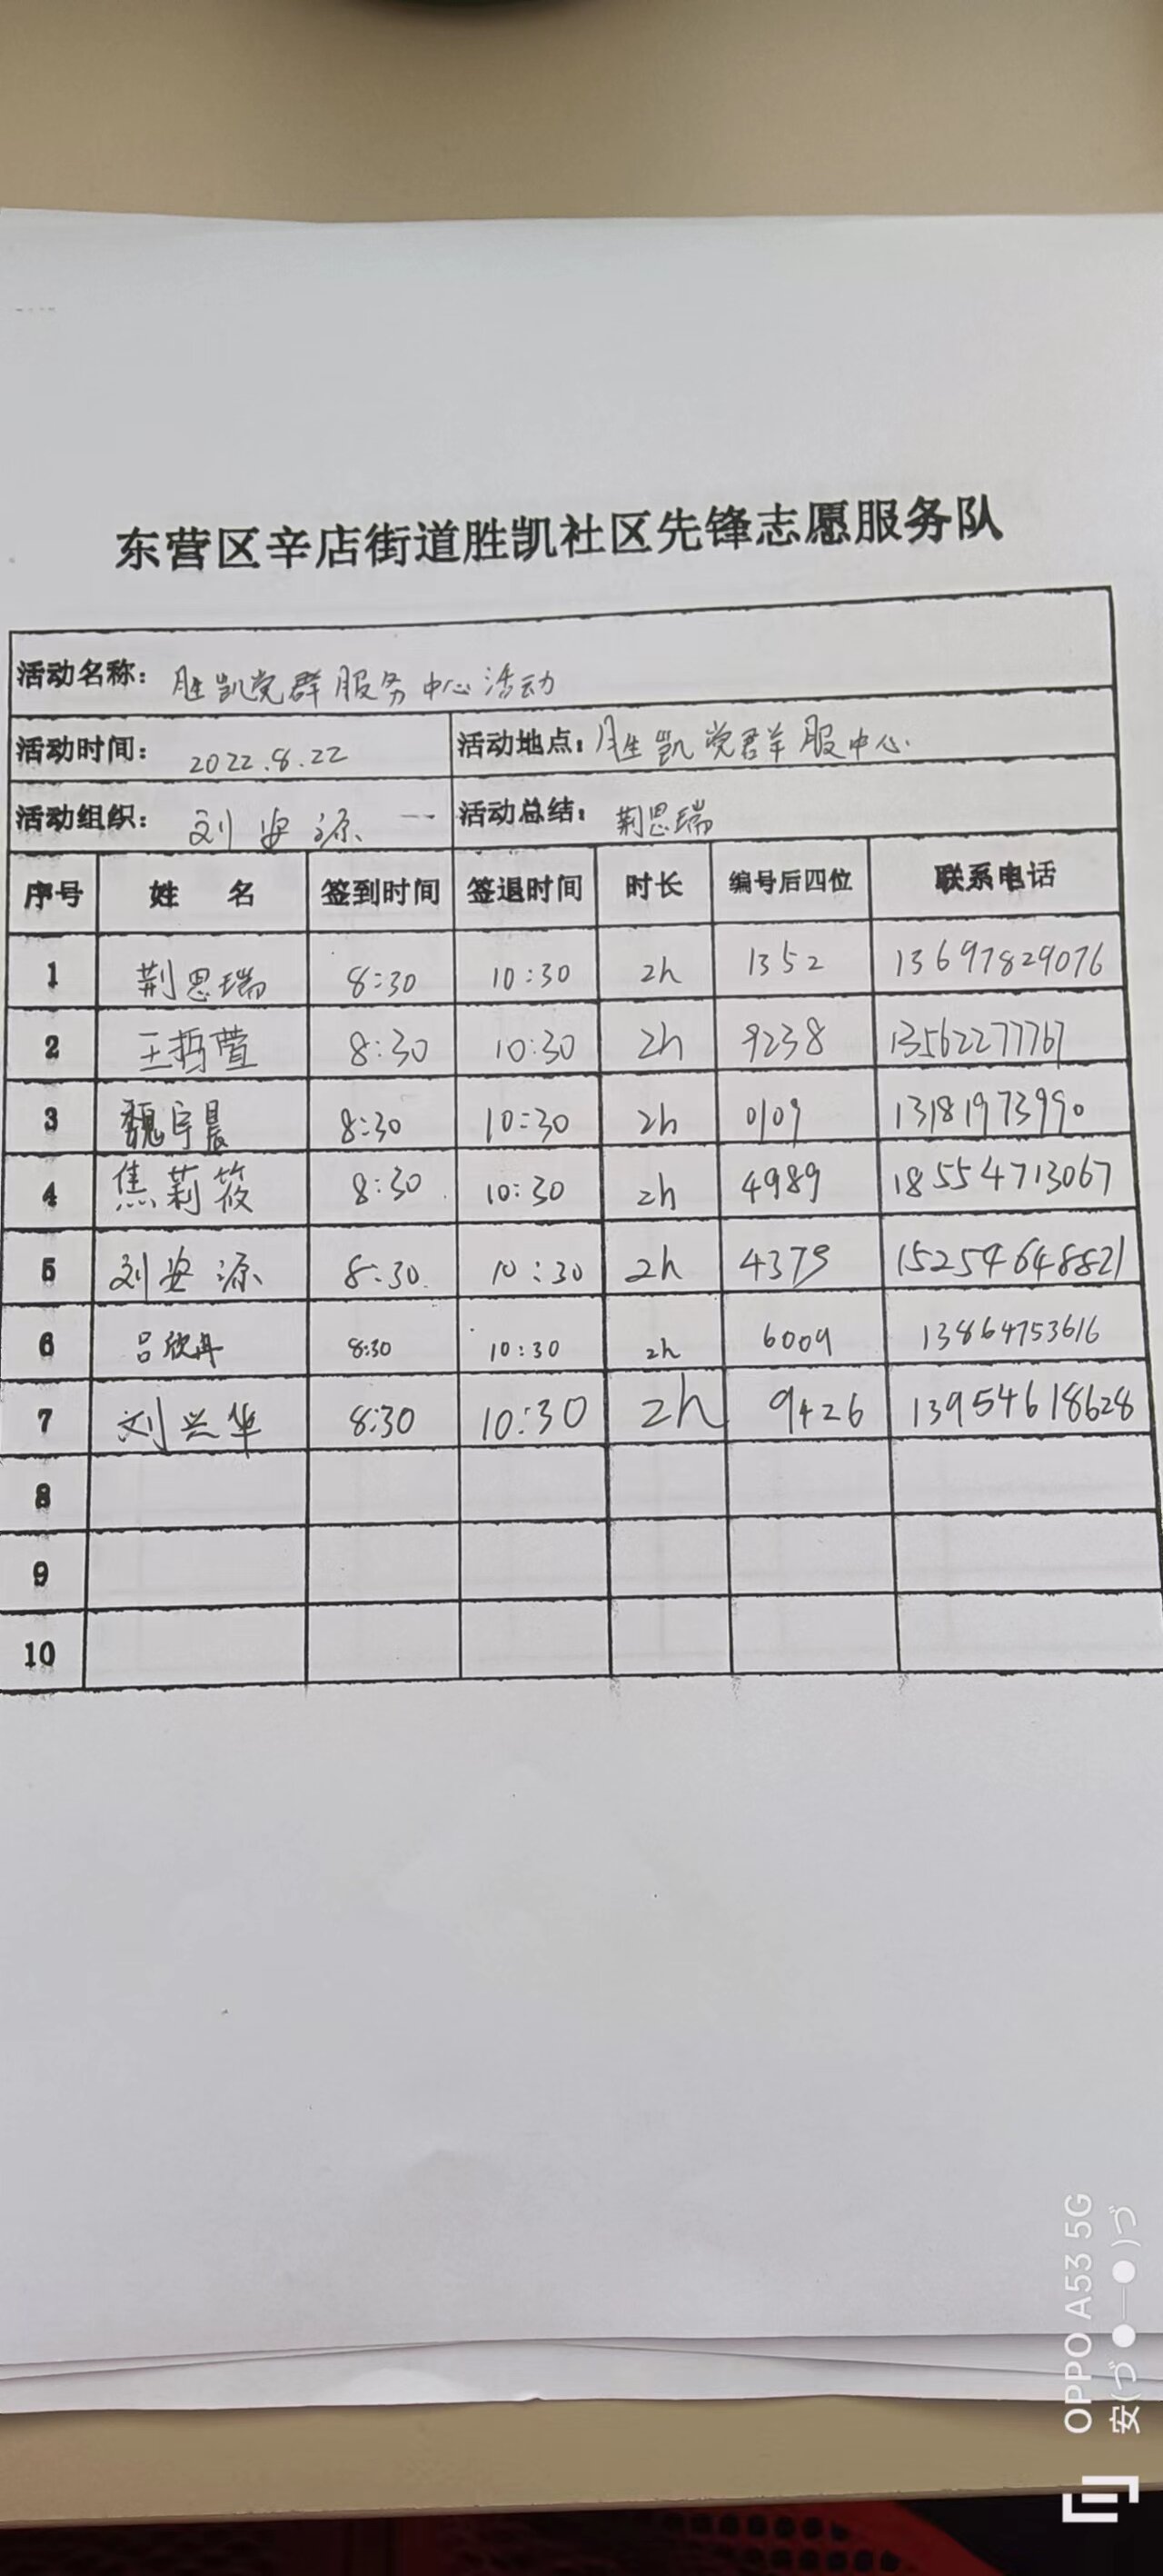 东营区辛店街道胜凯社区先锋志愿服务队
活动名称： 胜凯党群服务中心活动
活动时间： 2022.8.22 活动地点： 胜凯党群服中心.
活动组织： 刘安源 活动总结： 荆思瑞
序号 姓 名 签到时间 签退时间 时长 编号后四位 联系电话
1 荆思瑞 8:30 10:30 2h 1352 13697829076
2 王哲萱 8:30 10:30 2h 9238 13562277767
3 魏宇晨 8:30 10:30 2h 0109 13181973990
4 焦莉筱 8:30 10:30 2h 4989 18554713067
5 刘安源 8:30 10:30 2h 4379 15254648821
6 吕欣冉 8:30 10:30 2h 6009 13864753616
7 刘兴华 8:30 10:30 2h 9426 13954618628
8
9
10
OPPO A53 5G
安(づ●—●)づ